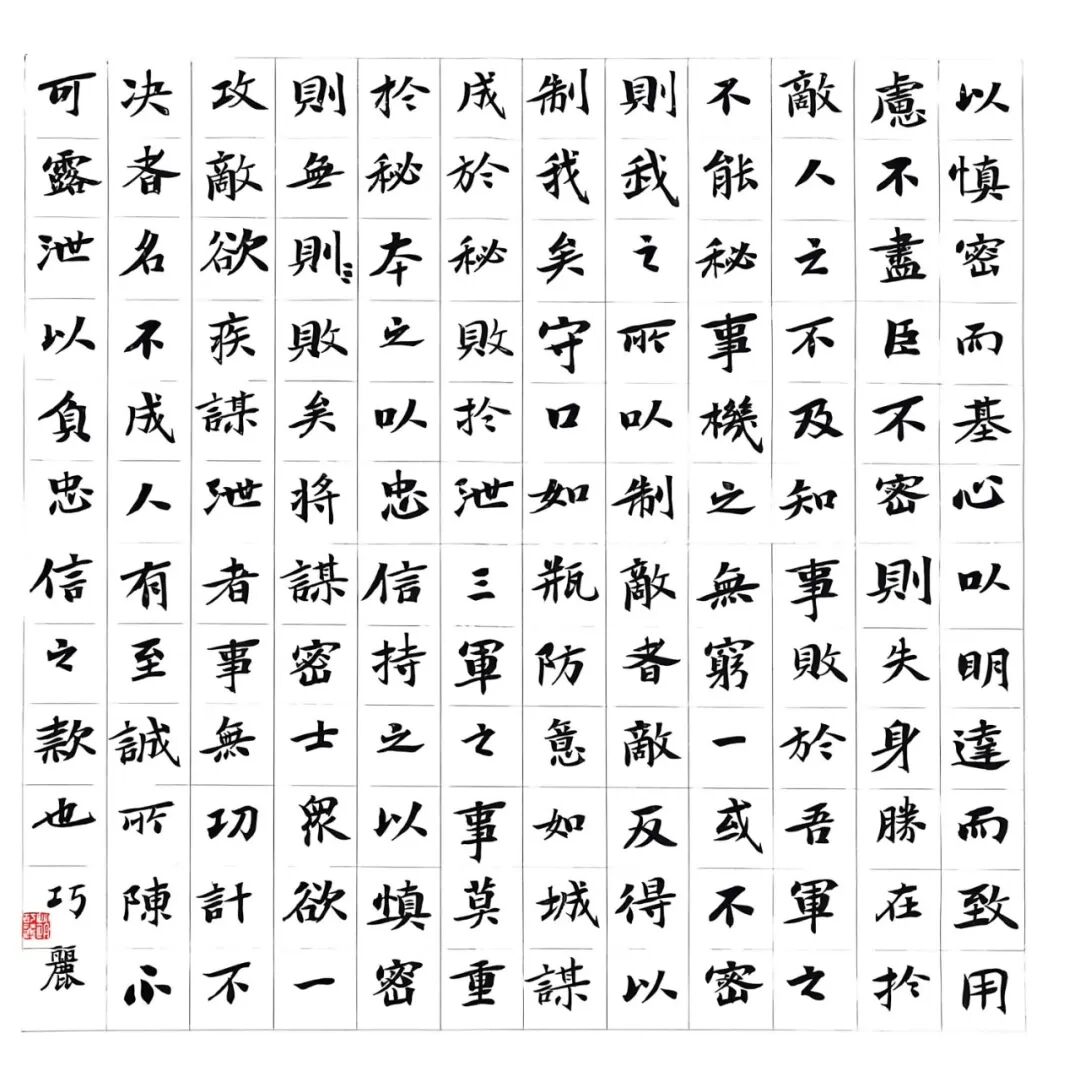 以慎密而基心以明達而致用
慮不盡臣不密則失身勝在於
敵人之不及知事敗於吾軍之
不能秘事機之無窮一或不密
則我之所以制敵者敵反得以
制我矣守口如瓶防意如城謀
成於秘敗於泄三軍之事莫重
於秘本之以忠信持之以慎密
則無則敗矣將謀密士眾欲一
攻敵欲疾謀泄者事無功計不
决者名不成人有至誠所陳不
可露泄以負忠信之款也 巧麗